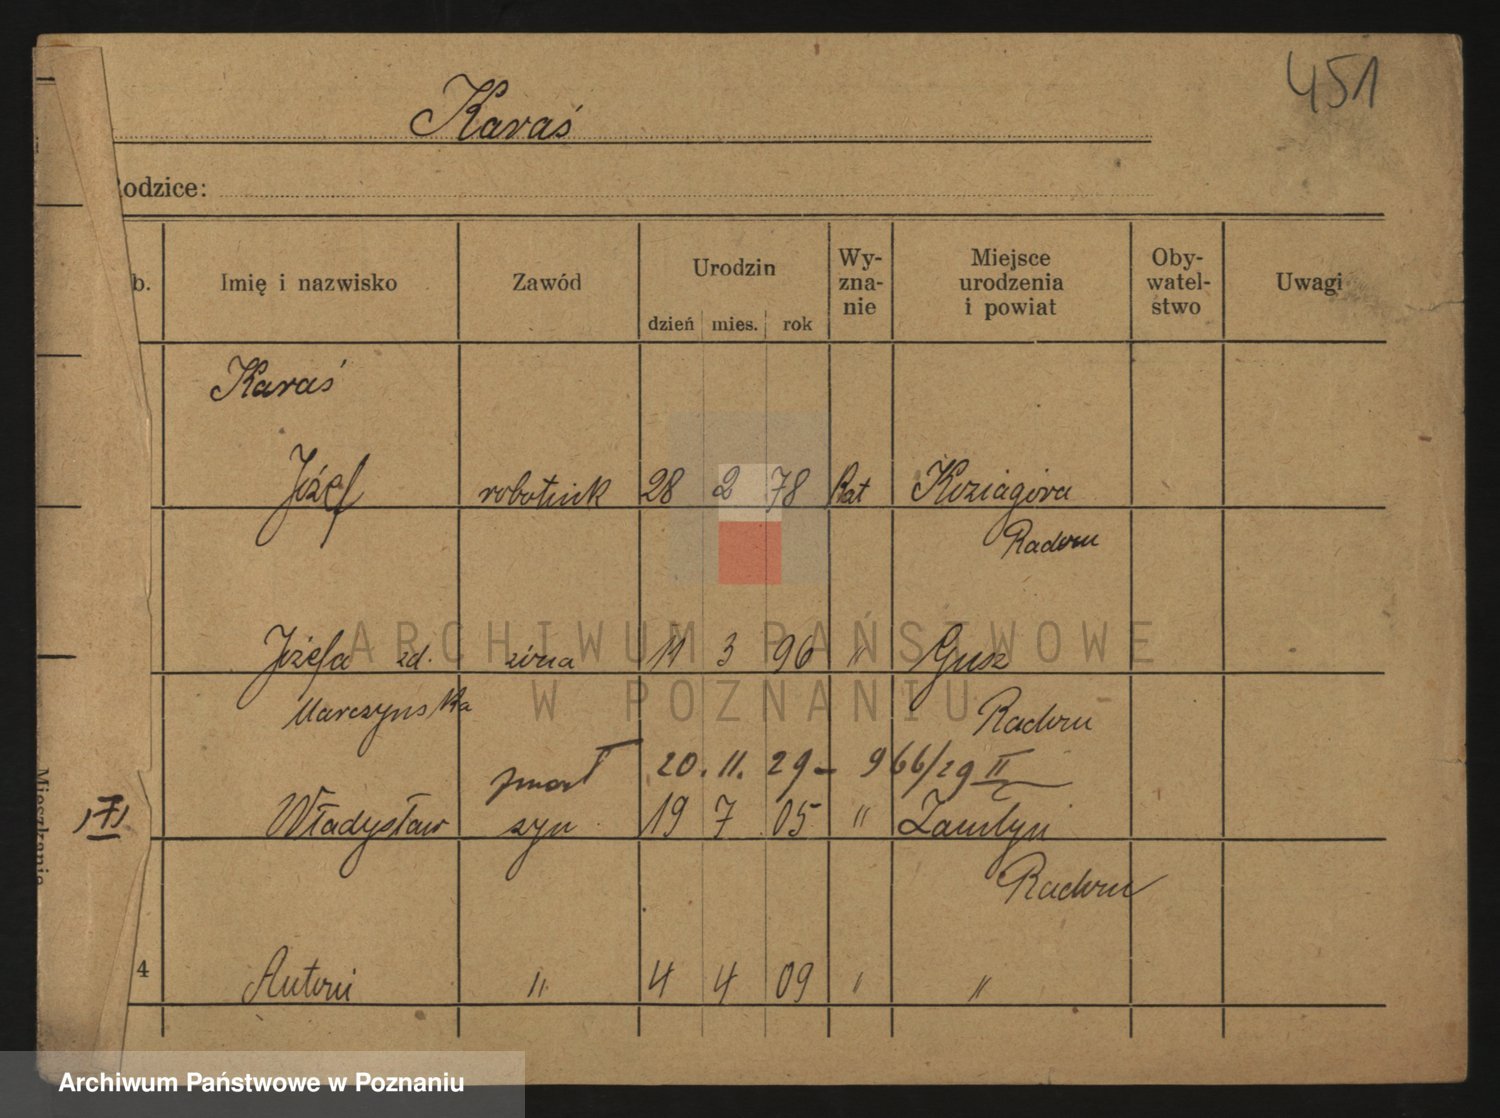 451
Karaś
Rodzice:
b.
Imię i nazwisko
Zawód
Urodzin
dzień mies. rok
Wy-
zna-
nie
Miejsce
urodzenia
i powiat
Oby-
watel-
stwo
Uwagi
Karaś
Józef robotnik 28 2 78 Kat Koziagóra
Radom
Józefa zd. żona 11 3 96 "
Marczyńska Radom
zmarł 20. 11. 29 - 966/29 II
Władysław syn 19 7 05 "
Radom
4 Antoni " 4 4 09 " "
Mieszkania
ARCHIWUM PAŃSTWOWE
W POZNANIU
Archiwum Państwowe w Poznaniu